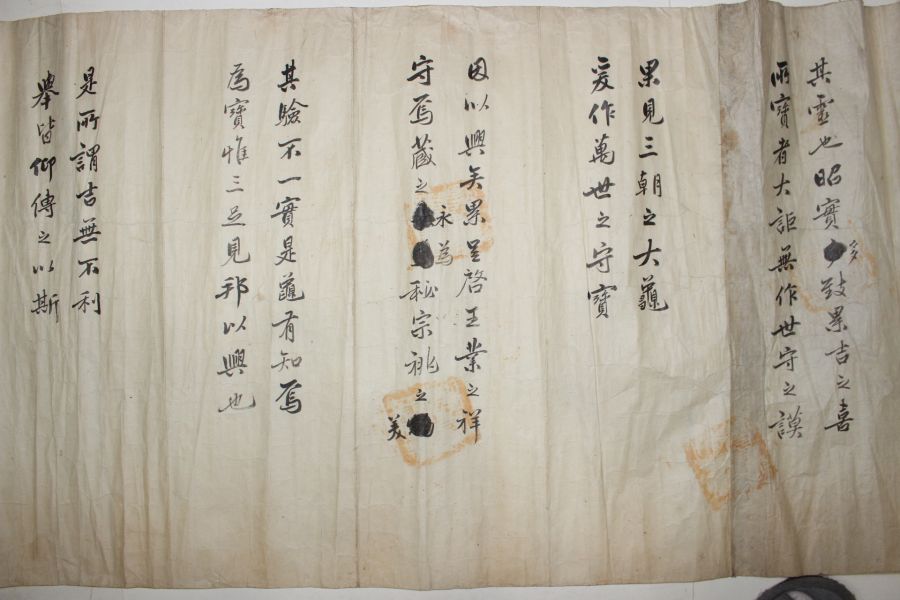 其靈也昭實多致累吉之喜
所寶者大詎無作世守之謨
果見三朝之大龜
爰作萬世之守寶
因以興矣累呈啓王業之祥
守焉藏之永為秘宗祧之美
其驗不一實是龜有知焉
為寶惟三足見邦以興也
是所謂吉無不利
舉皆仰傳之以斯